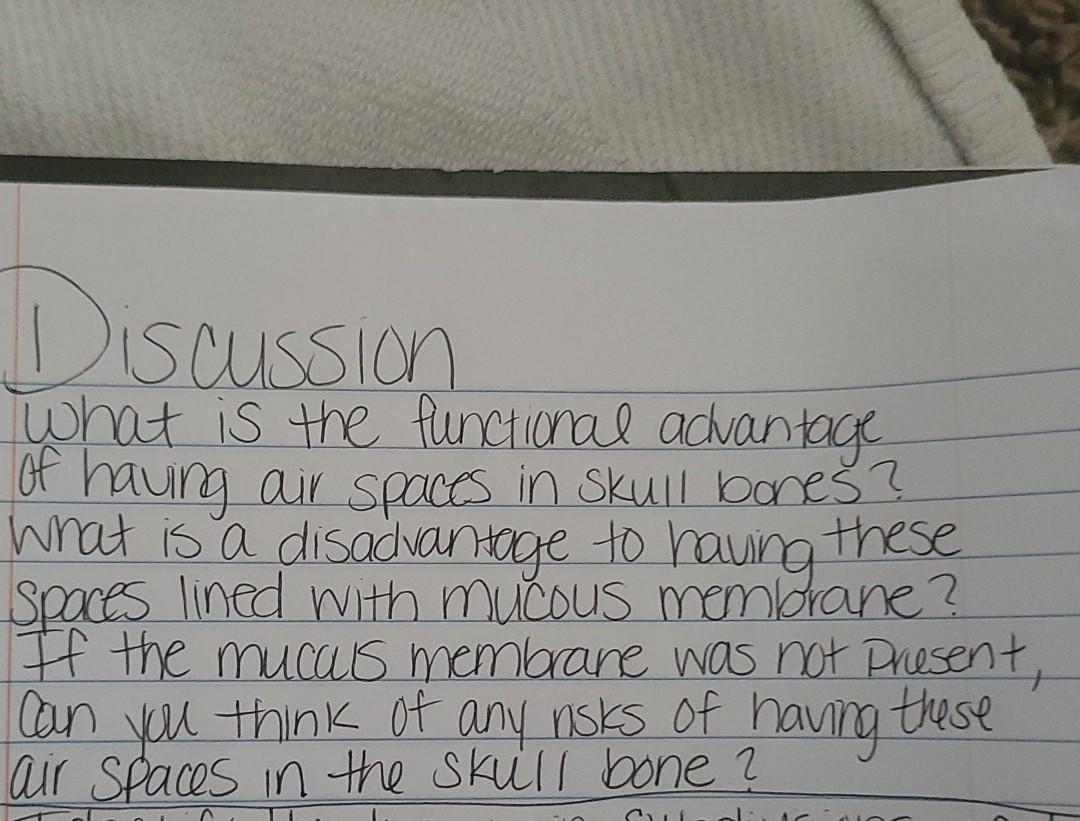 Discussion
What is the functional advantage
of having air spaces in skull bones?
What is a disadvantage to having these
spaces lined with mucous membrane?
If the mucous membrane was not present,
Can you think of any risks of having these
air spaces in the skull bone?